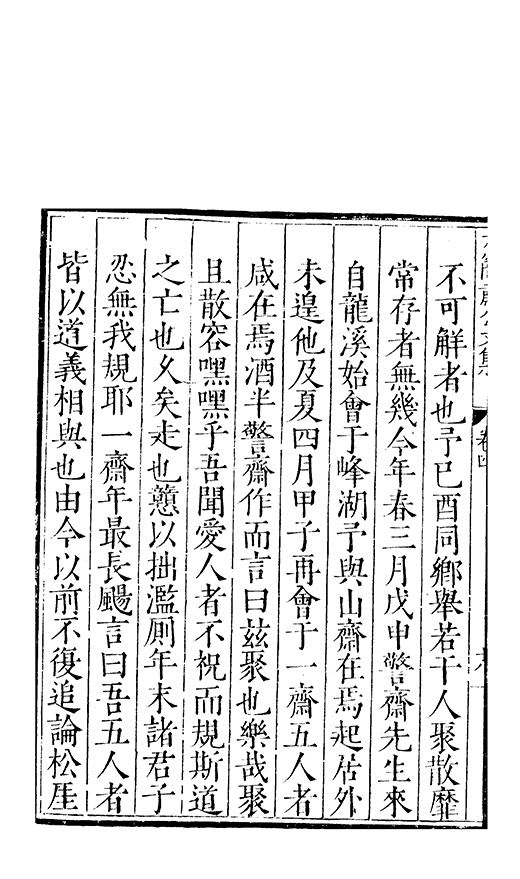 不可解者也予已酉同鄉舉若干人聚散靡
常存者無幾今年春三月戊申警齋先生來
自龍溪始會于峰湖予與山齋在焉起居外
未遑他及夏四月甲子再會于一齋五人者
咸在焉酒半警齋作而言曰兹聚也樂哉聚
且散容嘿嘿乎吾聞愛人者不祝而規斯道
之亡也久矣走也戆以拙濫厠年末諸君子
忍無我規耶一齋年最長颺言曰吾五人者
皆以道義相與也由今以前不復追論松厓